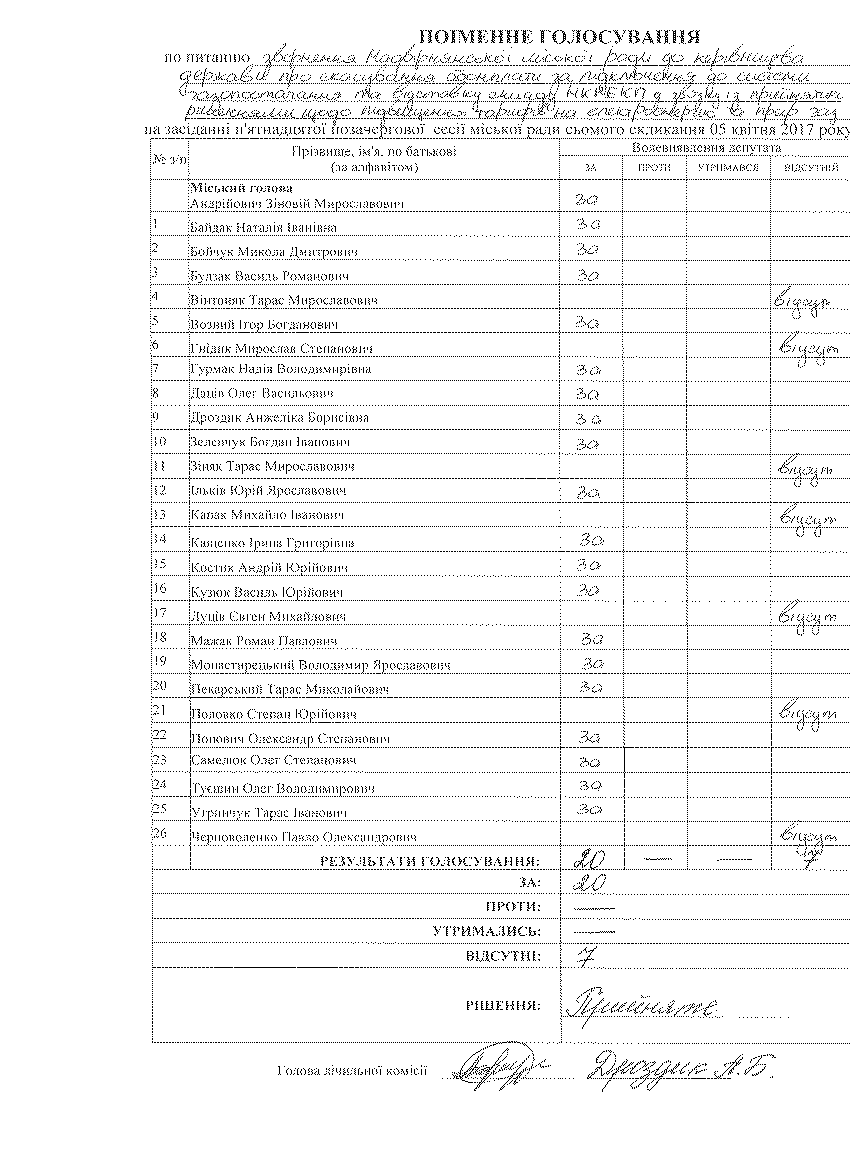 ПОІМЕННЕ ГОЛОСУВАННЯ
по питанню звернення Надвірнянської міської ради до керівництва
держави про скасування абонплати за підключення до системи
газопостачання та відставку складу НКРЕКП у зв'язку із прийняттям
рішеннями щодо підвищення тарифів на електроенергію й прир газ
на засіданні п'ятнадцятої позачергової сесії міської ради сьомого скликання 05 квітня 2017 року
№ з/п Прізвище, ім'я, по батькові Волевиявлення депутата
(за алфавітом) ЗА ПРОТИ УТРИМАВСЯ ВІДСУТНІЙ
Міський голова
Андрійович Зіновій Мирославович за
1 Байдак Наталія Іванівна за
2 Бойчук Микола Дмитрович за
3 Будзак Василь Романович за
4 Вінтоняк Тарас Мирославович відсут
5 Возний Ігор Богданович за
6 Гнідак Мирослав Степанович відсут
7 Гурмак Надія Володимирівна за
8 Даців Олег Васильович за
9 Дроздик Анжеліка Борисівна за
10 Зеленчук Богдан Іванович за
11 Зіняк Тарас Мирославович відсут
12 Ільків Юрій Ярославович за
13 Капак Михайло Іванович відсут
14 Кащенко Ірина Григорівна за
15 Костяк Андрій Юрійович за
16 Кузюк Василь Юрійович за
17 Луців Євген Михайлович відсут
18 Мажак Роман Павлович за
19 Монастирецький Володимир Ярославович за
20 Пекарський Тарас Миколайович за
21 Половко Степан Юрійович відсут
22 Попович Олександр Степанович за
23 Самелюк Олег Степанович за
24 Туєшин Олег Володимирович за
25 Угринчук Тарас Іванович за
26 Черноволенко Павло Олександрович відсут
РЕЗУЛЬТАТИ ГОЛОСУВАННЯ: 20 — — 7
ЗА: 20
ПРОТИ: —
УТРИМАЛИСЬ: —
ВІДСУТНІ: 7
РІШЕННЯ: Прийняте
Голова лічильної комісії Дроздик А.Б.